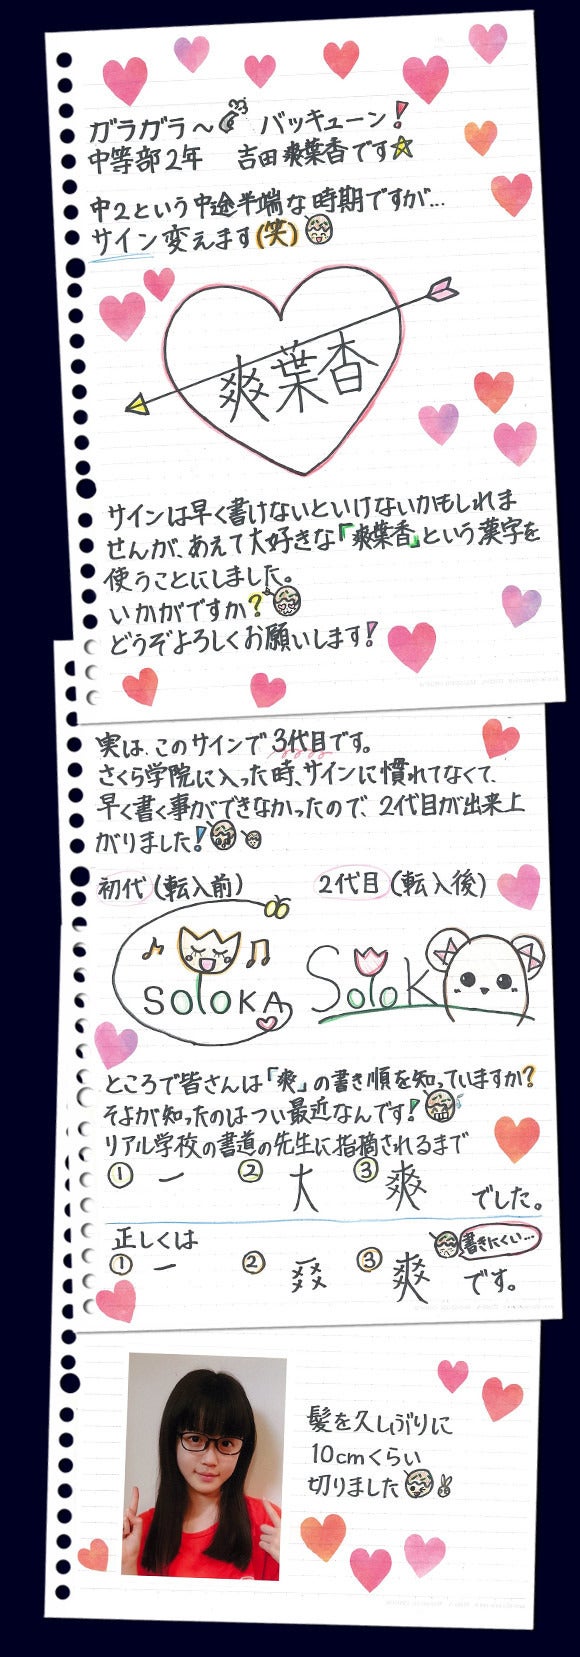 ガラガラ〜 バッキューン!
中等部2年 吉田爽葉香です☆
中2という中途半端な時期ですが…
サイン変えます(笑)
爽葉香
サインは早く書けないといけないかもしれま
せんが、あえて大好きな「爽葉香」という漢字を
使うことにしました。
いかがですか?
どうぞよろしくお願いします!
実は、このサインで3代目です。
さくら学院に入った時、サインに慣れてなくて、
早く書く事ができなかったので、2代目が出来上
がりました!
初代(転入前) 2代目(転入後)
SOLOKA
SoloK
ところで皆さんは「爽」の書き順を知っていますか?
そよが知ったのはつい最近なんです!
リアル学校の書道の先生に指摘されるまで
① 一 ② 大 ③ 爽 でした。
正しくは
書きにくい…
① 一 ② ③ 爽 です。
髪を久しぶりに
10cmくらい
切りました